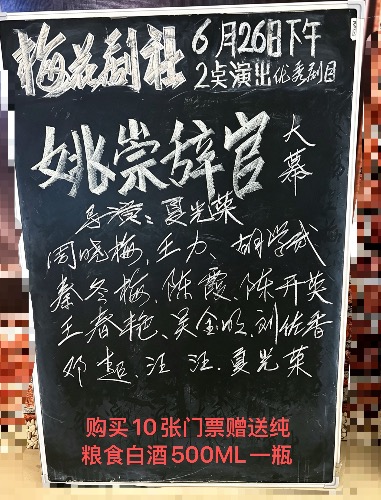 梅花剧社 6月26日下午
2点演出优秀剧目
姚崇辞官 大幕
导演：夏光荣
周晓梅、王力、胡学武
秦冬梅、陈霞、陈开英
王春艳、吴金明、刘佐香
邓超、汪汪、夏光荣
购买10张门票赠送纯
粮食白酒500ML一瓶